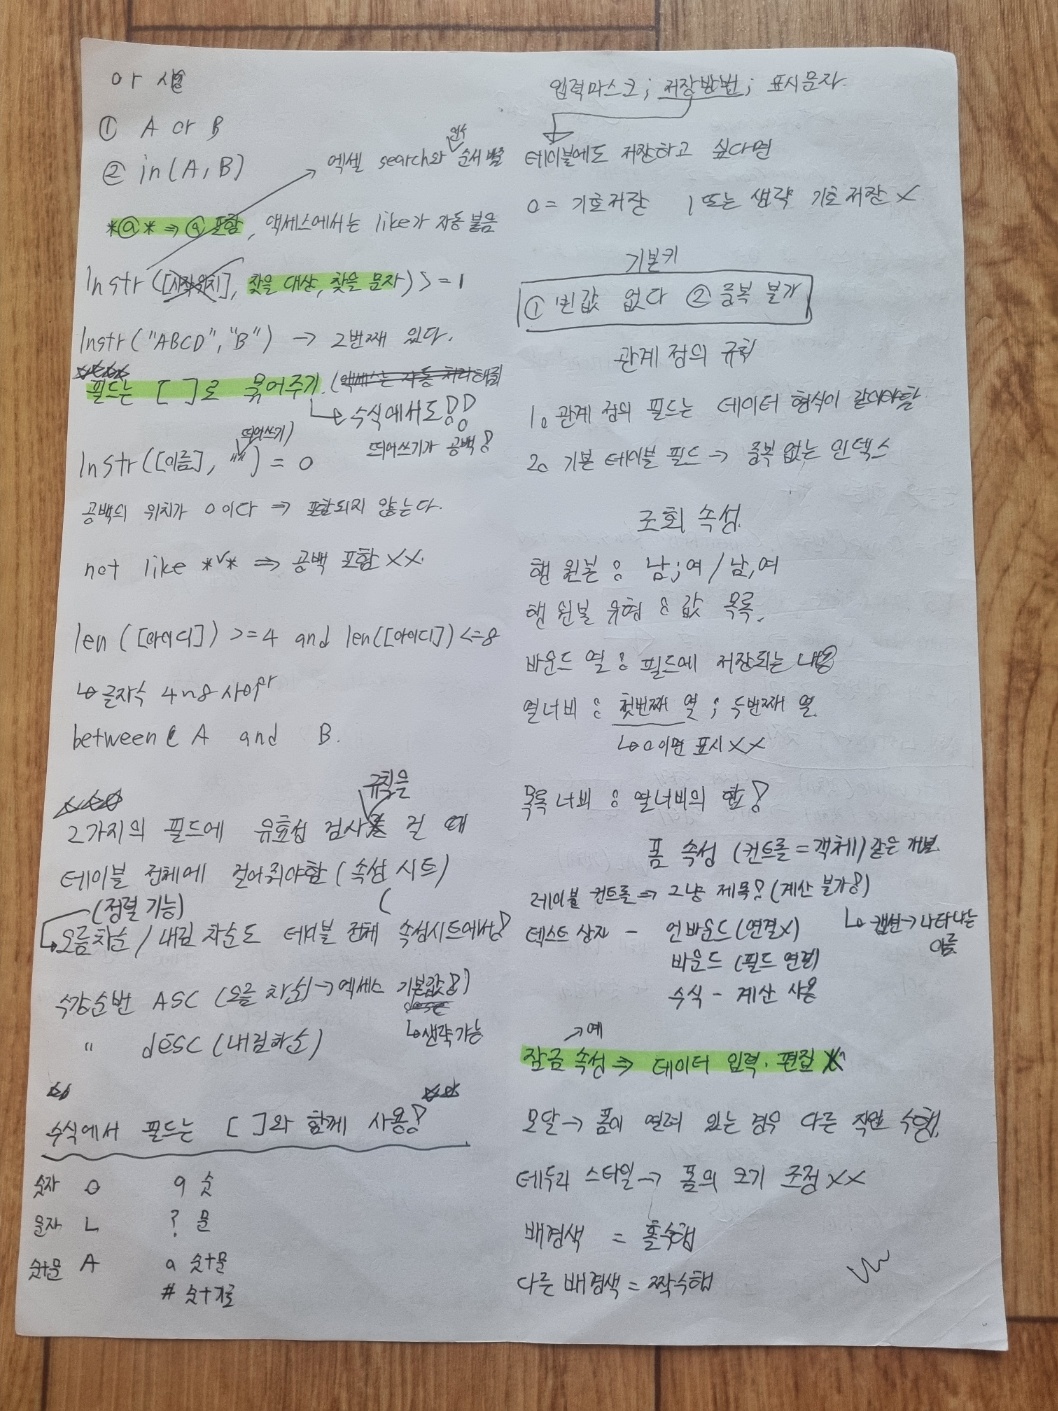 or 식
① A or B
② in(A, B)
→ 엑셀 search와 인수 순서 반대
*ⓐ* ⇒ ⓐ 포함, 액세스에서는 like가 자동 붙음
Instr([시작위치], 찾을 대상, 찾을 문자) >= 1
Instr("ABCD", "B") → 2번째 있다.
필드는 [ ]로 묶어주기. (액세스는 자동 처리해줘
↳ 수식에서도!!
Instr([이름], " ") = 0
띄어쓰기)
띄어쓰기가 공백!
공백의 위치가 0이다 ⇒ 포함되지 않는다.
not like *∨* ⇒ 공백 포함 XX.
len([아이디]) >=4 and len([아이디]) <=8
↳ 글자수 4~8 사이
between A and B.
규칙을
2가지의 필드에 유효성 검사 걸 때
테이블 전체에 걸어줘야함 (속성 시트)
(정렬 기능)
↳ 오름차순/내림차순도 테이블 전체 속성시트에서!
수강순번 ASC (오름차순) → 엑세스 기본값!)
↳ 생략가능
" desc (내림차순)
수식에서 필드는 [ ]와 함께 사용!
숫자 0 9 숫
문자 L ? 문
숫+문 A a 숫+문
# 숫+기호
입력마스크; 저장방법; 표시문자.
테이블에도 저장하고 싶다면
0 = 기호저장 1 또는 생략 기호 저장 X
기본키
① 빈값 없다 ② 중복 불가
관계 정의 규칙
1. 관계 정의 필드는 데이터 형식이 같아야함
2. 기본 테이블 필드 → 중복 없는 인덱스
조회 속성
행 원본 : 남;여 / 남,여
행 원본 유형 : 값 목록.
바운드 열 : 필드에 저장되는 내용
열너비 : 첫번째 열 ; 두번째 열
↳ 0이면 표시 XX
목록 너비 : 열너비의 합!
폼 속성 (컨트롤 = 객체) 같은 개념
레이블 컨트롤 ⇒ 그냥 제목! (계산 불가!)
↳ 캡션 → 나타나는 이름
텍스트 상자 - 언바운드 (연결X)
바운드 (필드 연결)
수식 - 계산 사용
→ 예
잠금 속성 ⇒ 데이터 입력·편집 X
모달 → 폼이 열려 있는 경우 다른 작업 수행.
테두리 스타일 → 폼의 크기 조정 XX
배경색 = 홀수행
다른 배경색 = 짝수행